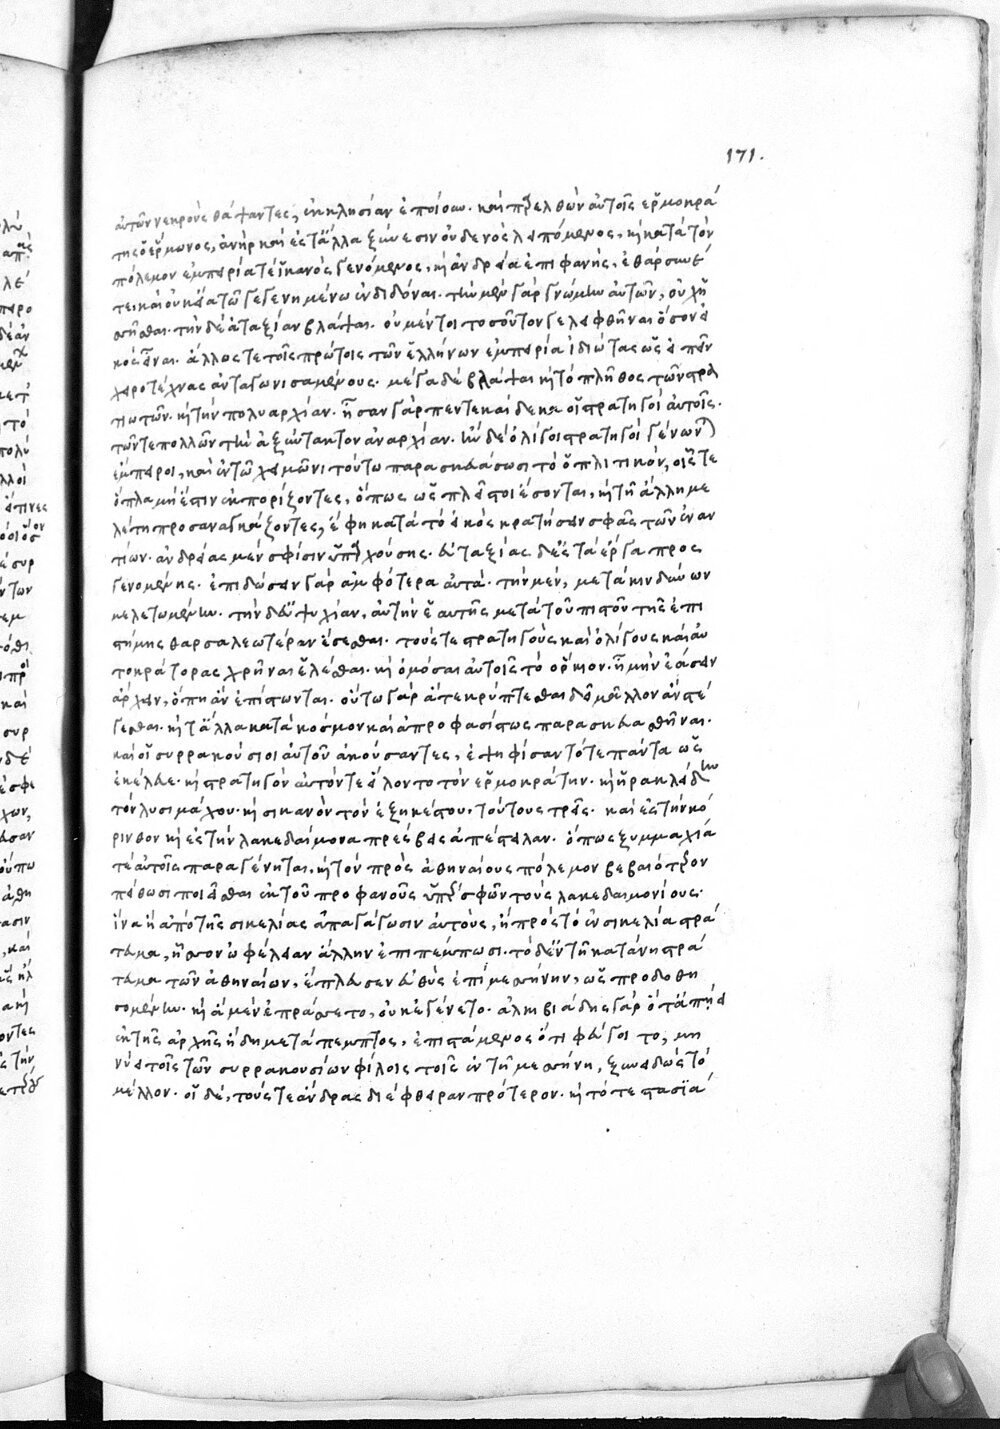 171.
αὐτῶν νεκροὺς θάψαντες, ἐκκλησίαν ἐποίουν. καὶ προελθὼν αὐτοῖς ἑρμοκρά
της ὁ ἕρμωνος, ἀνὴρ καὶ ἐς τἄλλα ξύνεσιν οὐδενὸς λειπόμενος, κὶ κατὰ τὸν
πόλεμον ἐμπειρία τὲ ἱκανὸς γενόμενος, κὶ ἀνδρεία ἐπιφανής, ἐθάρσυνέ
τε. καὶ οὐκ εἴα τῶ γεγενημένω ἐνδιδόναι. τὴν μὲν γὰρ γνώμην αὐτῶν, οὐχ ἡ
σῆσθαι. τὴν δὲ ἀταξίαν βλάψαι. οὐ μέντοι τοσοῦτον γε λειφθῆναι ὅσον εἰ
κὸς εἶναι. ἄλλως τε τοῖς πρώτοις τῶν ἑλλήνων ἐμπειρία ἰδιώτας ὡς εἰπεῖν
χειροτέχνας ἀνταγωνισαμένους. μέγα δὲ βλάψαι κὶ τὸ πλῆθος τῶν στρα
τιωτῶν. κὶ τὴν πολυαρχίαν. ἦσαν γὰρ πέντε καὶ δεκα οἱ στρατηγοὶ αὐτοῖς.
τῶν τε πολλῶν τὴν ἀξύντακτον ἀναρχίαν. ἢν δὲ ὀλίγοι στρατηγοὶ γένωνται
ἔμπειροι, καὶ ἐν τῶ χειμῶνι τούτω παρασκευάσωσι τὸ ὁπλιτικόν, οἷς τε
ὅπλα μὴ ἔστιν ἐκπορίζοντες, ὅπως ὡς πλεῖστοι ἔσονται, κὶ τῆ ἄλλη με
λέτη προσαναγκάζοντες, ἔφη κατὰ τὸ εἰκὸς κρατήσειν σφᾶς τῶν ἐναν
τίων. ἀνδρείας μὲν σφίσιν ὑπαρχούσης. εὐταξίας δὲ ἐς τὰ ἔργα προσ
γενομένης. ἐπιδώσειν γὰρ ἀμφότερα αὐτά. τὴν μέν, μετὰ κινδύνων
μελετωμένην. τὴν δ' εὐψυχίαν, αὐτὴν ἑαυτῆς μετὰ τοῦ πιστοῦ τῆς ἐπι
στήμης θαρσαλεωτέραν ἔσεσθαι. τούς τε στρατηγοὺς καὶ ὀλίγους καὶ αὐ
τοκράτορας χρῆναι ἑλέσθαι. κὶ ὀμόσαι αὐτοῖς τὸ ὅρκιον. ἦ μὴν ἐάσειν
ἄρχειν, ὅπη ἂν ἐπίστωνται. οὕτω γὰρ ἅ τε κρύπτεσθαι δεῖ μᾶλλον ἂν στέ
γεσθαι. κὶ τἄλλα κατὰ κόσμον καὶ ἀπροφασίστως παρασκευασθῆναι.
καὶ οἱ συρρακούσιοι αὐτοῦ ἀκούσαντες, ἐψηφίσαντό τε πάντα ὡς
ἐκέλευε. κὶ στρατηγὸν αὐτόν τε εἵλοντο τὸν ἑρμοκράτην. κὶ ἡρακλείδην
τὸν λυσιμάχου. κὶ σικανὸν τὸν ἐξηκέστου. τούτους τρεῖς. καὶ ἐς τὴν κό
ρινθον κὶ ἐς τὴν λακεδαίμονα πρέσβεις ἀπέστειλαν. ὅπως ξυμμαχία
τὲ αὐτοῖς παραγένηται, κὶ τὸν πρὸς ἀθηναίους πόλεμον βεβαιότερον
πείθωσι ποιεῖσθαι ἐκ τοῦ προφανοῦς ὑπὲρ σφῶν τοὺς λακεδαιμονίους.
ἵνα ἢ ἀπὸ τῆς σικελίας ἀπαγάγωσιν αὐτούς, ἢ πρὸς τὸ ἐν σικελία στρά
τευμα, ἧσσον ὠφέλειαν ἄλλην ἐπιπέμπωσι. τὸ δ' ἐν τῆ κατάνη στρά
τευμα τῶν ἀθηναίων, ἔπλευσεν εὐθὺς ἐπὶ μεσήνην, ὡς προδοθη
σομένην. κὶ ἃ μὲν ἐπράσσετο, οὐκ ἐγένετο. ἀλκιβιάδης γὰρ ὅτ' ἀπήει
ἐκ τῆς ἀρχῆς ἤδη μετάπεμπτος, ἐπιστάμενος ὅτι φεύγοιτο, μη
νύει τοῖς τῶν συρρακουσίων φίλοις τοῖς ἐν τῆ μεσήνη, ξυνειδὼς τὸ
μέλλον. οἱ δέ, τούς τε ἄνδρας διέφθειραν πρότερον. κὶ τότε στασιά